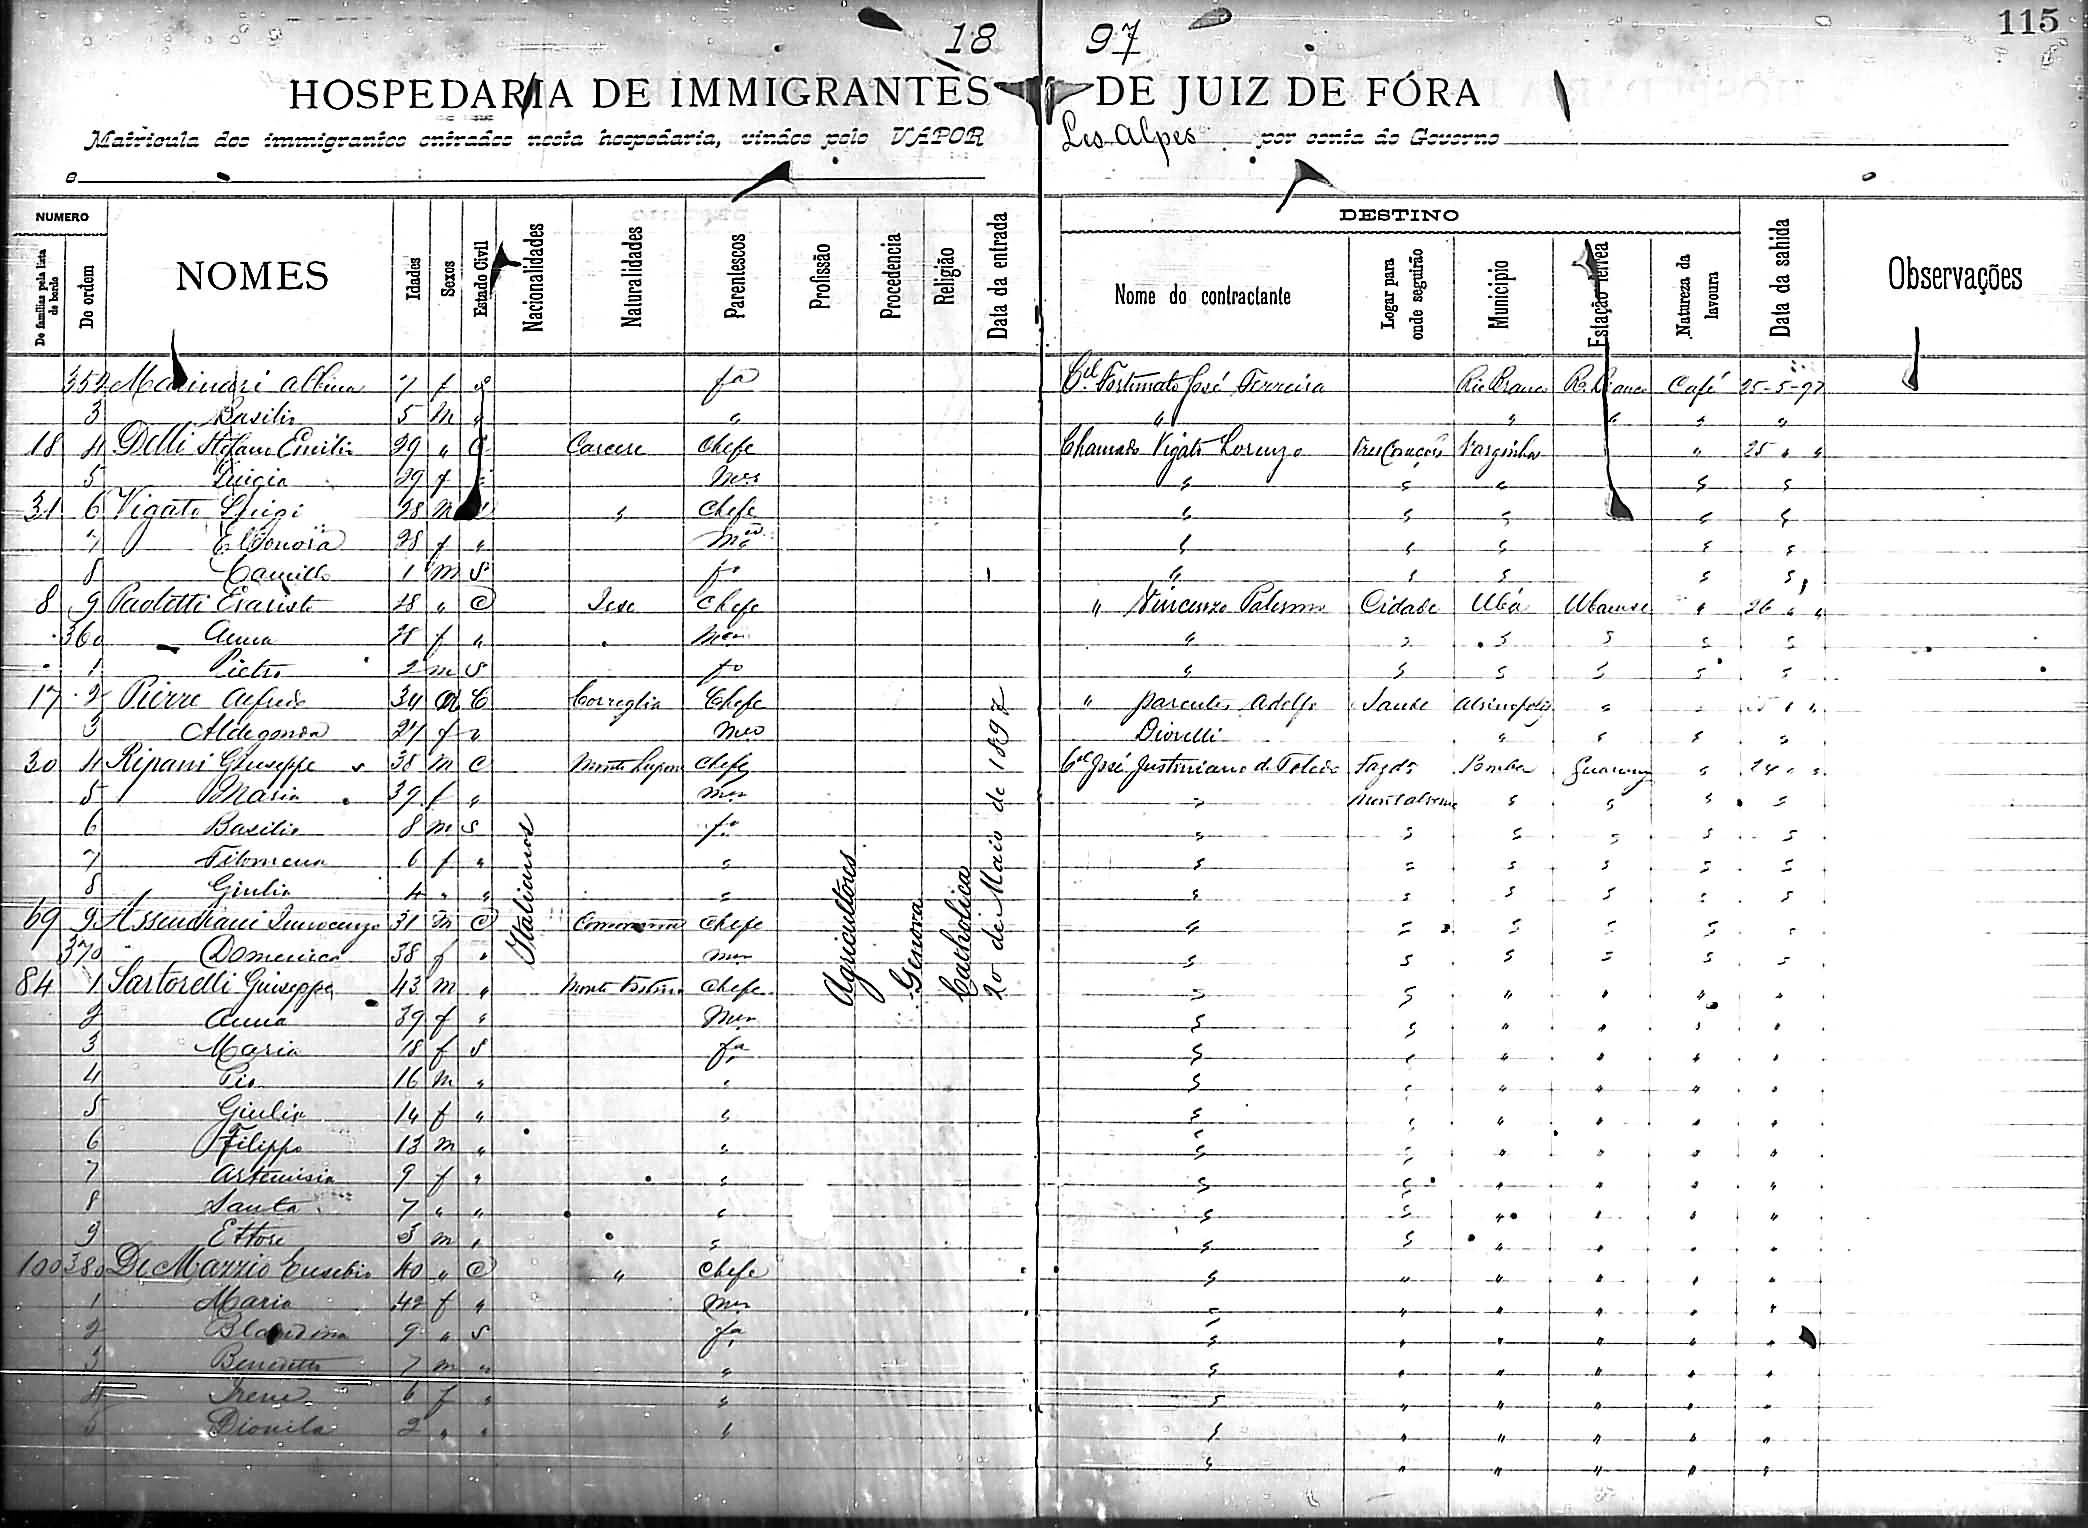 115
18 97
HOSPEDARIA DE IMMIGRANTES DE JUIZ DE FÓRA
Matricula dos immigrantes entrados nesta hospedaria, vindos pelo VAPOR Les Alpes por conta do Governo
e
NUMERO DESTINO
De familias pela lista de bordo Do ordem NOMES Idades Sexos Estado Civil Nacionalidades Naturalidades Parentescos Profissão Procedencia Religião Data da entrada Nome do contractante Logar para onde seguirão Municipio Estação ferrea Natureza da lavoura Data da sahida Observações
352 Marinari Albina 7 f S fa Cel Fortunato José Ferreira Rio Branco Rio Branco Café 25-5-97
3 Basilio 5 M " " " " " " "
18 4 Delli Stefano Emilio 29 " C Carcere Chefe Chamado Vigato Lorenzo Tres Corações Varginha " 25 " "
5 Luigia 29 f " Mer " " " " "
31 6 Vigato Luigi 28 M " " Chefe " " " " "
7 Eleonora 28 f " Mer " " " " "
8 Camillo 1 m S fo " " " " "
8 9 Paoletti Evaristo 28 " C Jese Chefe " Vincenzo Palermo Cidade Ubá Ubaense " 26 " "
360 Anna 28 f " Mer " " " " " "
1 Pietro 2 m S fo " " " " " "
17 2 Pierre Alfredo 34 M C Correglia Chefe " Adolfo " " "
3 Aldegonda 27 f " Mer Diorelli " " " "
30 4 Ripani Giuseppe 38 m C Chefe Cel José Justiniano de Toledo Fazda Pomba Guarany " 24 " "
5 Maria 39 f " mer " " " " "
6 Basilio 8 m S fo " " " " " "
7 Filomena 6 f " " " " " " " "
8 Giulia 4 " " " " " " " " "
69 9 Innocenzo 31 m C Chefe " " " " " "
370 Domenica 38 f " mer " " " " " "
84 1 Sartorelli Giuseppe 43 m " Chefe " " " " " "
2 Anna 39 f " Mer " " " " " "
3 Maria 18 f S fa " " " " " "
4 Pio 16 m " " " " " " " "
5 Giulia 14 f " " " " " " " "
6 Filippo 13 m " " " " " " " "
7 Artemisia 9 f " " " " " " " "
8 Santa 7 " " " " " " " " "
9 Ettore 3 m " " " " " " " "
100 380 De Marzio Eusebio 40 " C " Chefe " " " " " "
1 Maria 42 f " mer " " " " " "
2 Blandina 9 " S fa " " " " " "
3 Benedetto 7 m " " " " " " " "
4 Irene 6 f " " " " " " " "
5 Dionila 2 " " " " " " " " "
" " " " " "
Italianos
Agricultores
Genova
Catholica
20 de Maio de 1897